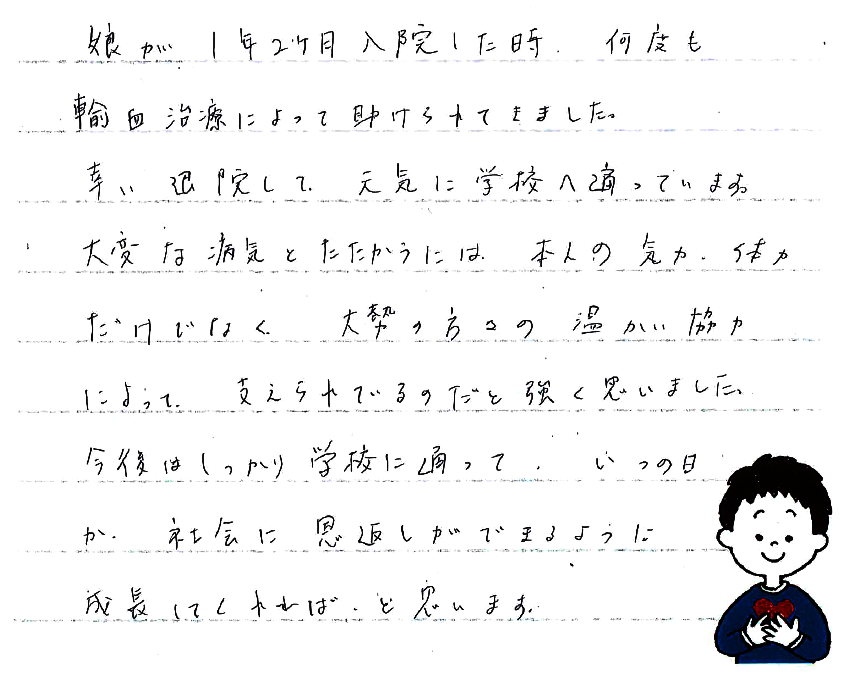 娘が1年2ケ月入院した時、何度も
輸血治療によって助けられてきました。
幸い退院して、元気に学校へ通っています。
大変な病気とたたかうには、本人の気力、体力
だけでなく、大勢の方々の温かい協力
によって、支えられているのだと強く思いました。
今後はしっかり学校に通って、いつの日
か、社会に恩返しができるように
成長してくれれば、と思います。